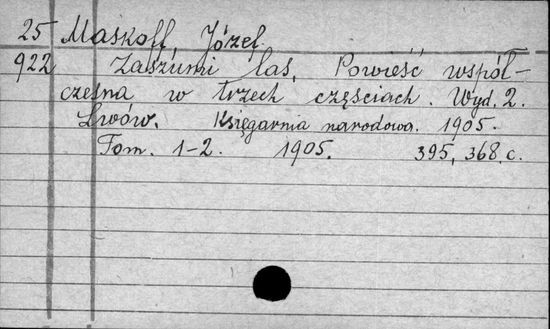 25 Maskoff, Józef.
922 Zaszumi las, Powieść współ-
czesna w trzech częściach. Wyd. 2.
Lwów. Księgarnia narodowa. 1905.
Tom. 1-2. 1905. 395, 368, c.